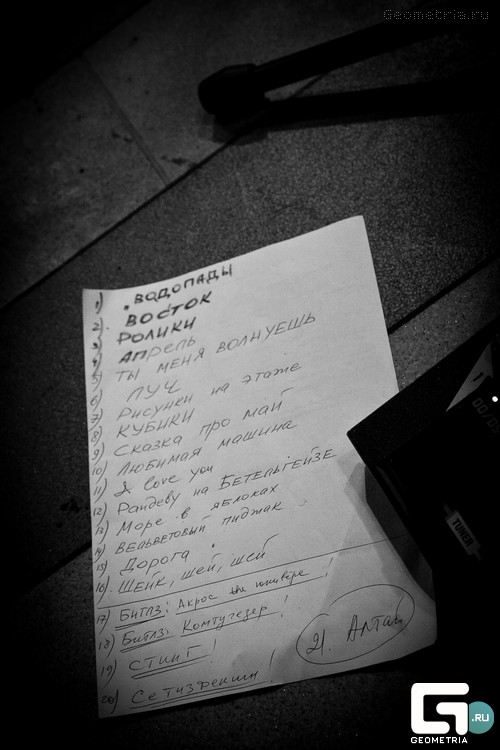 Geometria.ru
1) . ВОДОПАДЫ
2. ВОСТОК
3) РОЛИКИ
4) АПРЕЛЬ
5) ТЫ МЕНЯ ВОЛНУЕШЬ
6) ЛУЧ
7) Рисунки на этаже
8) КУБИКИ
9) Сказка про май
10) Любимая машина
11) I love you
12) Рандеву на БЕТЕЛЬГЕЙЗЕ
13) Море в яблоках
14) ВЕЛЬВЕТОВЫЙ пиджак
15) Дорога .
16) ШЕЙК, шей, шей
17) БИТЛЗ: Акрос the юнивёрс !
18) БИТЛЗ: Комтугезер !
19) СТИНГ !
20) Сетизфекшн !
21. Алтай
TUNER
G
.RU
GEOMETRIA